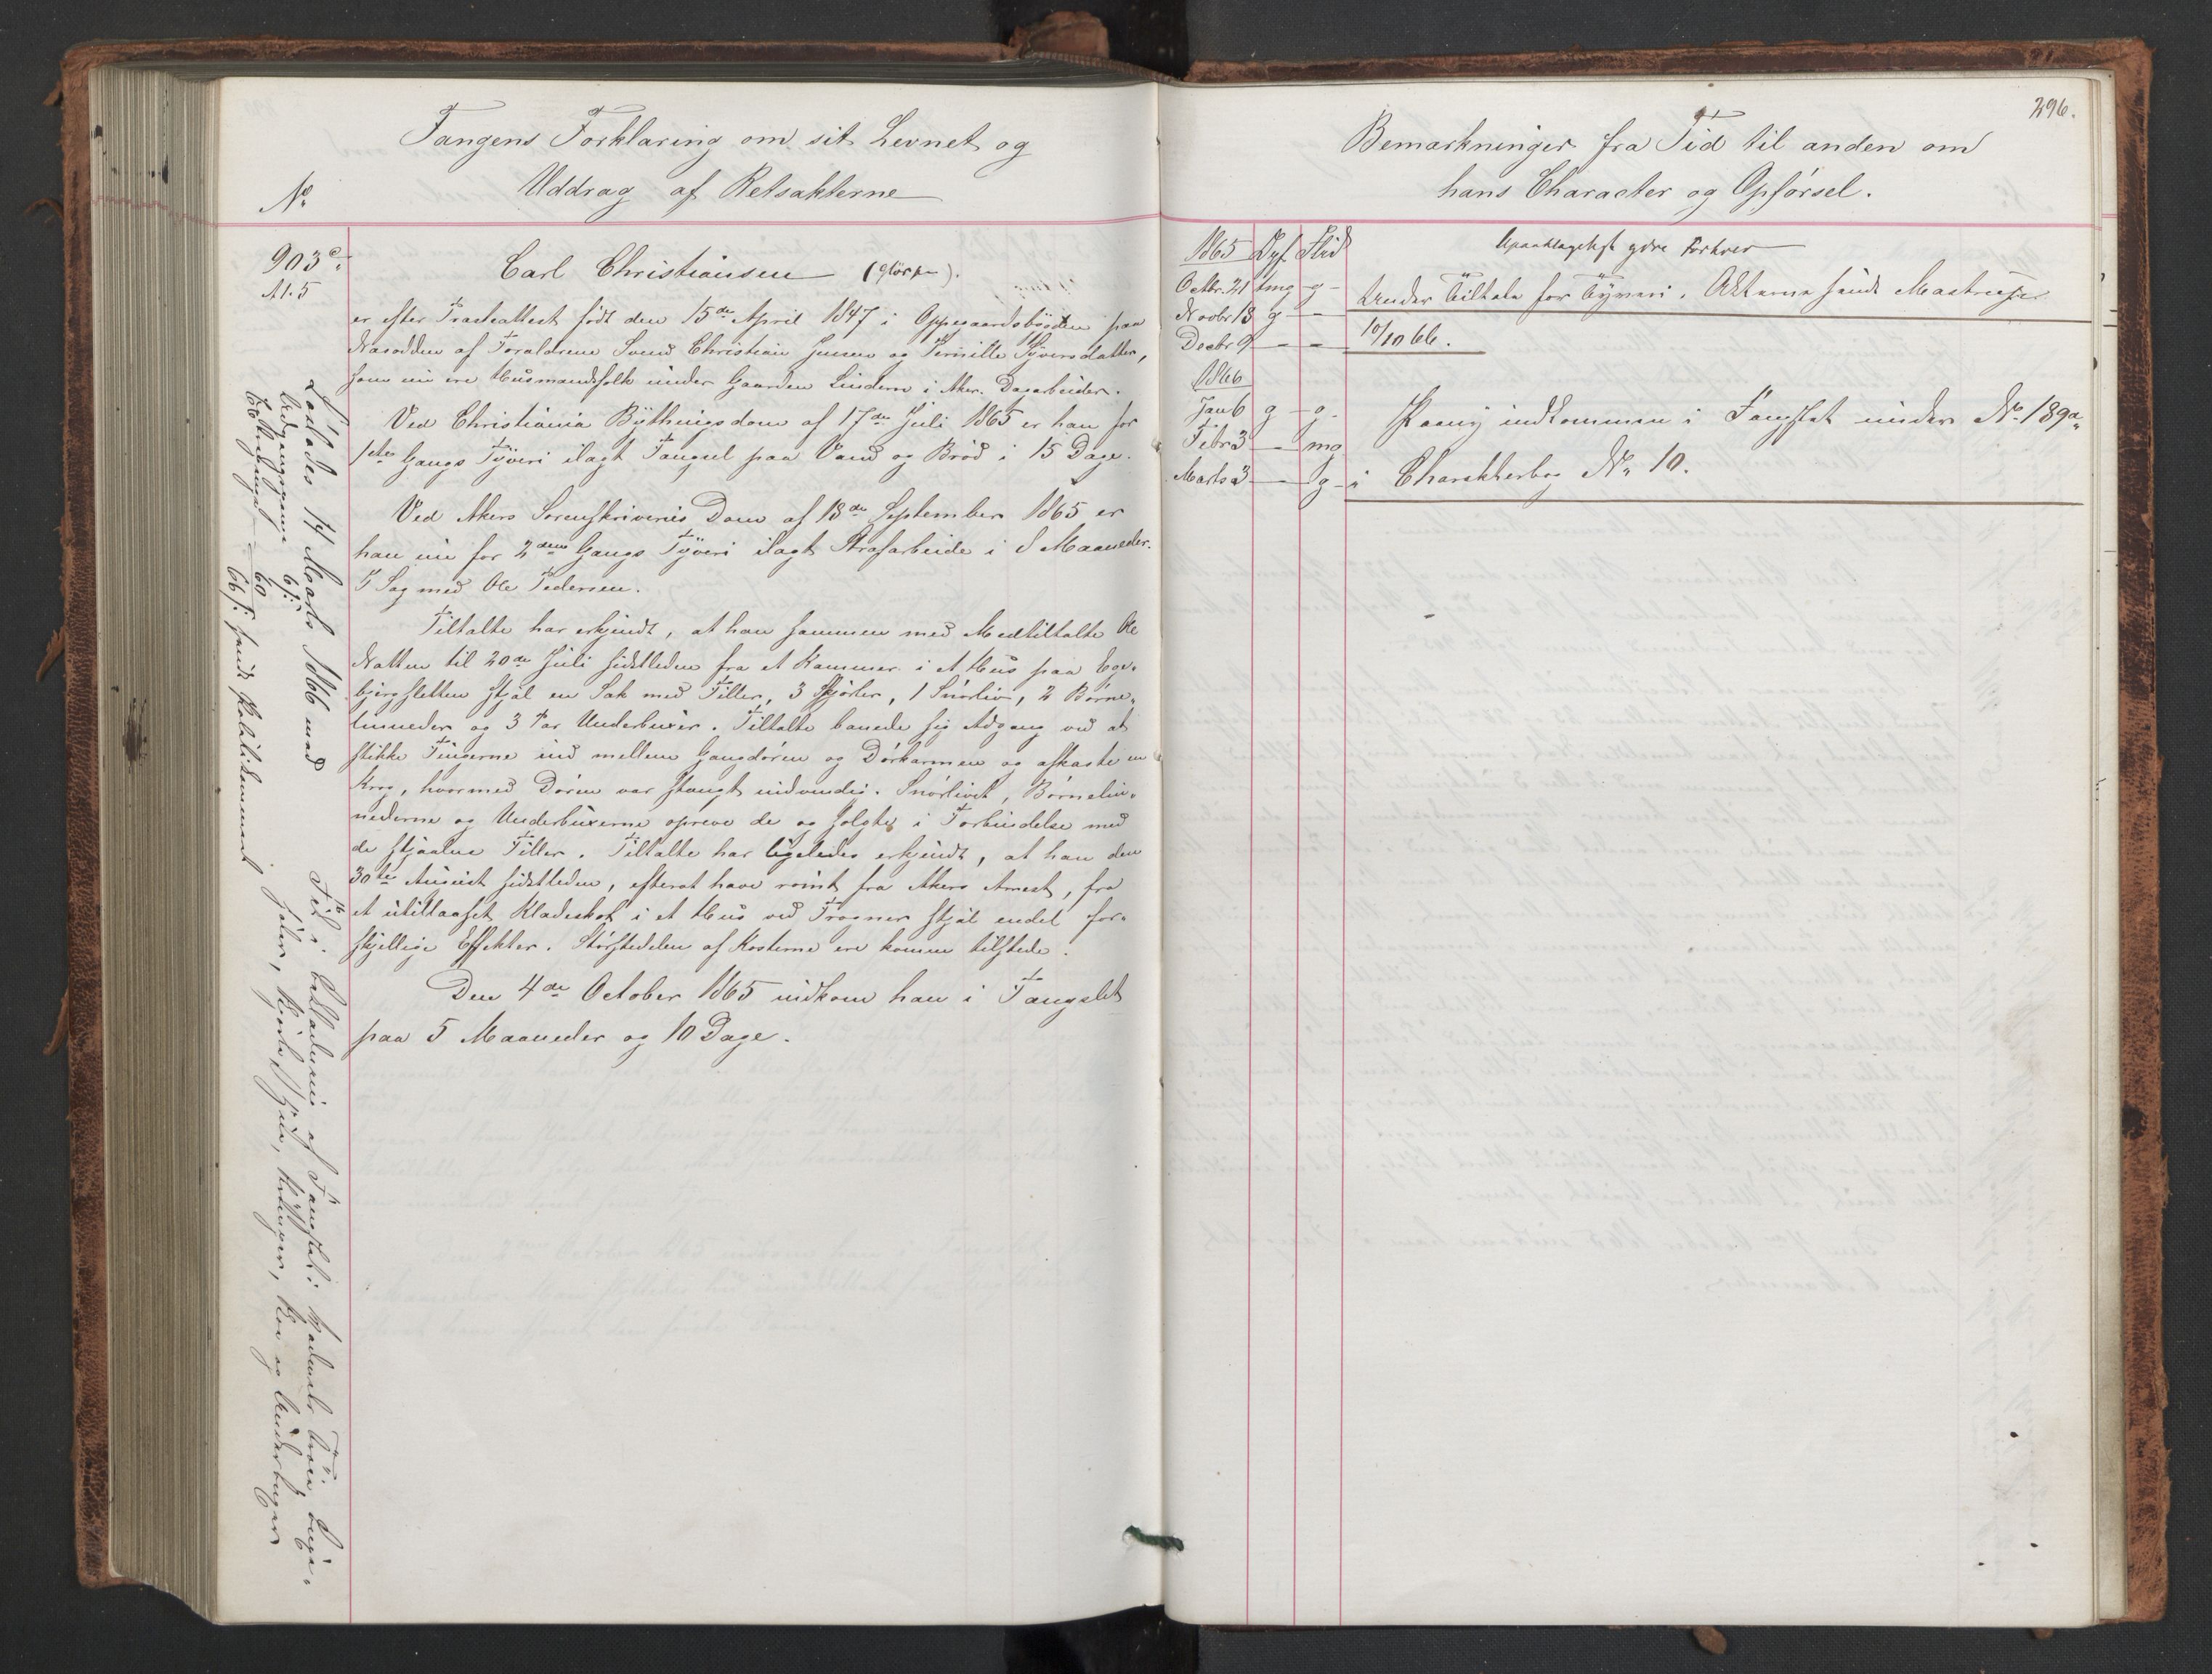 Fangens Forklaring om sit Levnet og
Uddrag af Retsakterne
No
903c.
A1.5
Carl Christiansen
er efter Præsteattest født den 15de April 1847 i Oppegaardsbøgden paa
Næsodden af Forældrene Svend Christian Jensen og Pernille Syversdatter,
som nu ere Husmandsfolk under Gaarden Lindern i Aker. Dagarbeider.
Ved Christiania Bythingsdom af 17de Juli 1865 er han for
1ste Gangs Tyveri ilagt Fængsel paa Vand og Brød i 15 Dage.
Ved Akers Sorenskriveries Dom af 13de September 1865 er
han nu for 2den Gangs Tyveri ilagt Strafarbeide i 5 Maaneder.
I Sag med Ole Pedersen.
Tiltalte har erkjendt, at han sammen med Medtiltalte Ole
Natten til 20de Juli sidstleden fra et Kammer i et Hus paa Ege-
bjergsletten stjal en Sæk med Filler, 3 Skjorter, 1 Snørliv, 2 Børne-
linneder og 3 Par Underbuxer. Tiltalte banede sig Adgang ved at
stikke Fingerne ind mellem Gangdøren og Dørkarmen og afkaste en
Krog, hvormed Døren var stængt indvendig. Snørlivet, Børnelin-
nederne og Underbuxerne oprev de og solgte i Forbindelse med
de stjaalne Filler. Tiltalte har ligeledes erkjendt, at han den
30te August sidstleden, efterat have rømt fra Akers Arrest, fra
et utillaaset Klædeskot i et Hus ved Frogner stjal endel for-
skjellige Effekter. Størstedelen af Kosterne ere komne tilstede.
Den 4de October 1865 indkom han i Fængslet
paa 5 Maaneder og 10 Dage.
Løslades 14 Marts 1866 med
Udgangspenge 6 s:
60
66 s: sendt Politikammeret
Fik i Beklædning af Fængslet: Vadmels Trøie, Buxe,
Skjorte, Sko og Underbuxer
296.
Bemærkninger fra Tid til anden om
hans Character og Opførsel.
1865 Opf. Flid
Octbr. 21 tmg g
Novbr 18 g -
Decbr 9 - -
1866
Jan 6 g g
Febr 3 - mg
Marts 3 - g
Upaaklageligt ydre Forhold
Under Tiltale for Tyveri. Akterne sendt
10/10 66.
Paany indkommen i Fængslet under No 189a
i Charakterbog No 10.